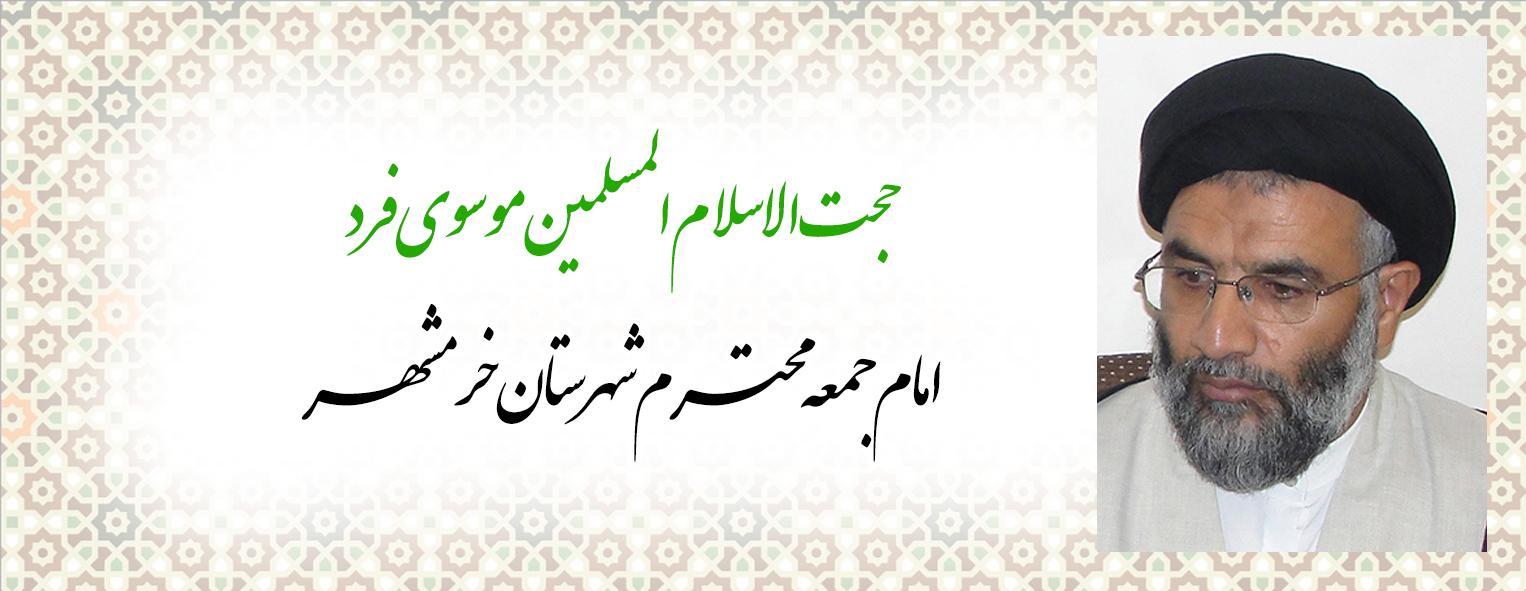 حجت الاسلام المسلمین موسوی فرد
امام جمعه محترم شهرستان خرمشهر